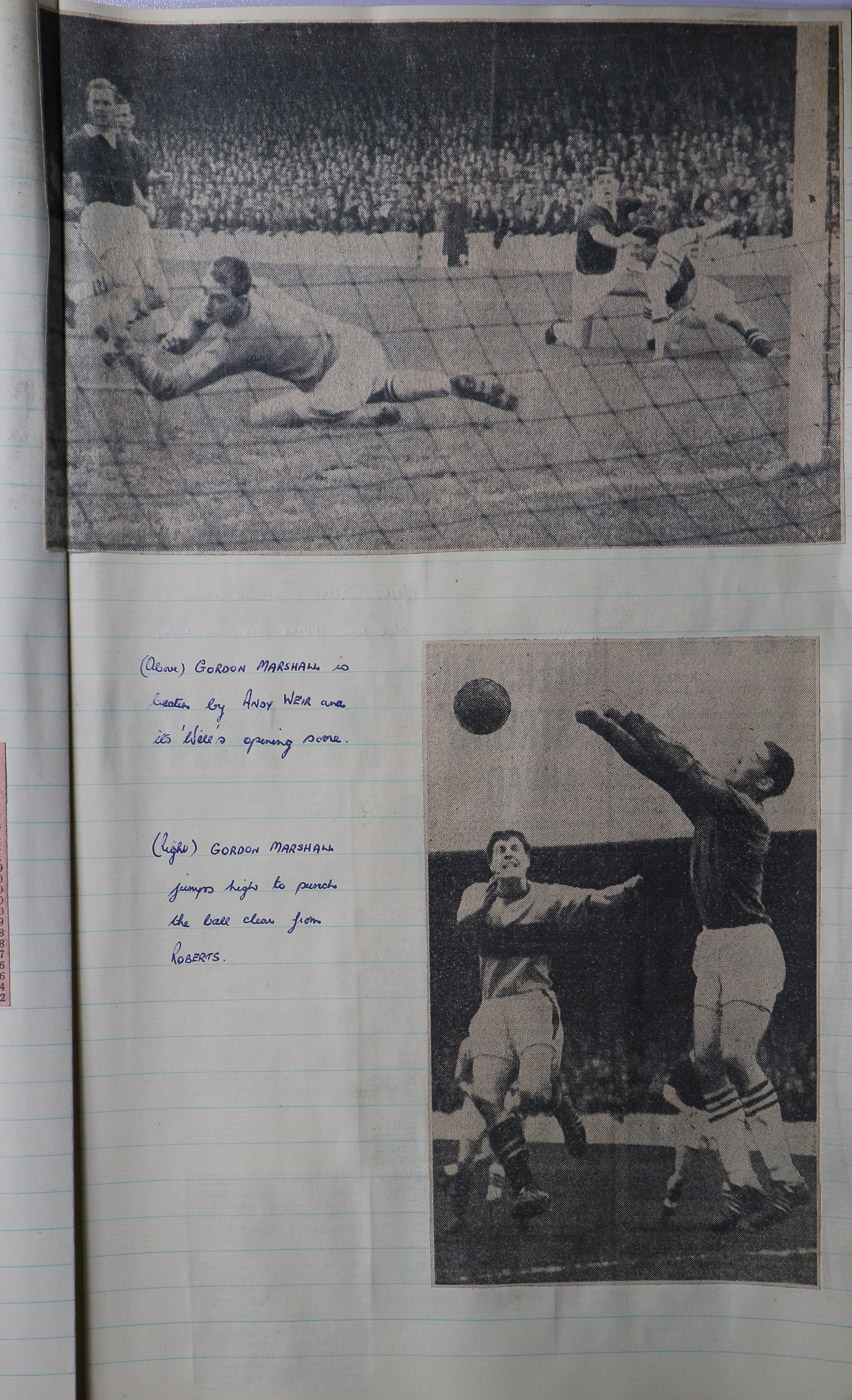 (Above) GORDON MARSHALL is
beaten by ANDY WEIR and
it's 'Well's opening score.
(Right) GORDON MARSHALL
jumps high to punch
the ball clear from
ROBERTS.
9
9
0
0
9
8
8
7
6
6
4
2